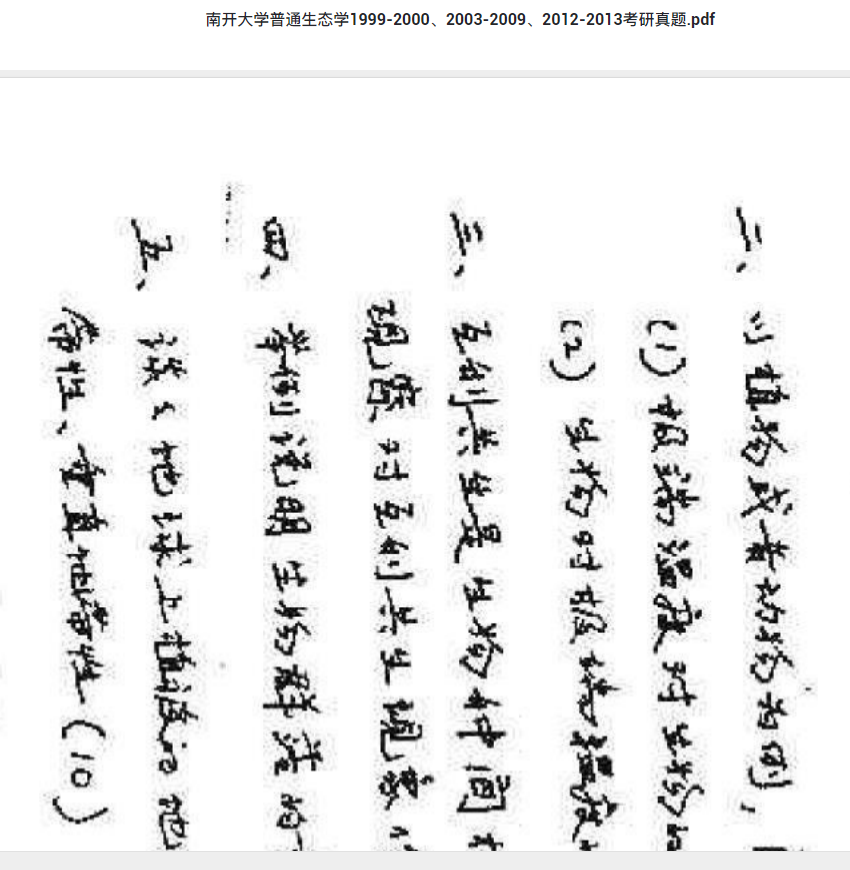 南开大学普通生态学1999-2000、2003-2009、2012-2013考研真题.pdf
二、以植物或者动物为例，
(1) 极端温度对生物
(2) 生物对极端温度
三、互利共生是生物种间
现象对互利共生现象
四、举例说明生物群落的
五、谈谈地球上植被的地
带性、垂直地带性 (10)